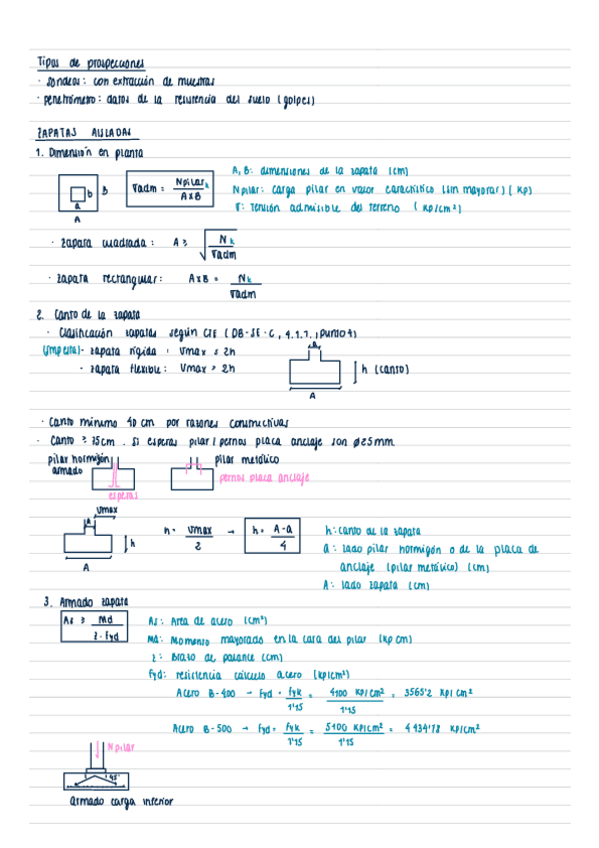 Tipos de prospecciones
· sondeos: con extracción de muestras
· penetrómetro: datos de la resistencia del suelo (golpes)
ZAPATAS AISLADAS
1. Dimensión en planta
b B
a
A
σadm = Npilar k / A x B
A, B: dimensiones de la zapata (cm)
Npilar: carga pilar en valor característico (sin mayorar) (Kp)
σ: Tensión admisible del terreno (Kp/cm²)
· zapata cuadrada: A ≥ √ Nk / σadm
· zapata rectangular: A x B = Nk / σadm
2. Canto de la zapata
· Clasificación zapatas según CTE (DB-SE-C, 4.1.1., punto 4)
- zapata rígida: Vmax ≤ 2h
- zapata flexible: Vmax > 2h
a
h (canto)
A
· Canto mínimo 40 cm por razones constructivas
· Canto ≥ 75cm. Si esperas pilar / pernos placa anclaje son ø25mm
pilar hormigón armado
pilar metálico
pernos placa anclaje
esperas
Vmax
a
h
A
h = Vmax / 2 → h = A-a / 4
h: canto de la zapata
a: lado pilar hormigón o de la placa de
anclaje (pilar metálico) (cm)
A: lado zapata (cm)
3. Armado zapata
As ≥ Md / z · fyd
As: Area de acero (cm²)
Md: Momento mayorado en la cara del pilar (kp cm)
z: Brazo de palanca (cm)
fyd: resistencia cálculo acero (kp/cm²)
Acero B-400 → fyd = fyk / 1'15 = 4100 kp/cm² / 1'15 = 3565'2 kp/cm²
Acero B-500 → fyd = fyk / 1'15 = 5100 kp/cm² / 1'15 = 4434'78 kp/cm²
N pilar
45°
armado carga inferior